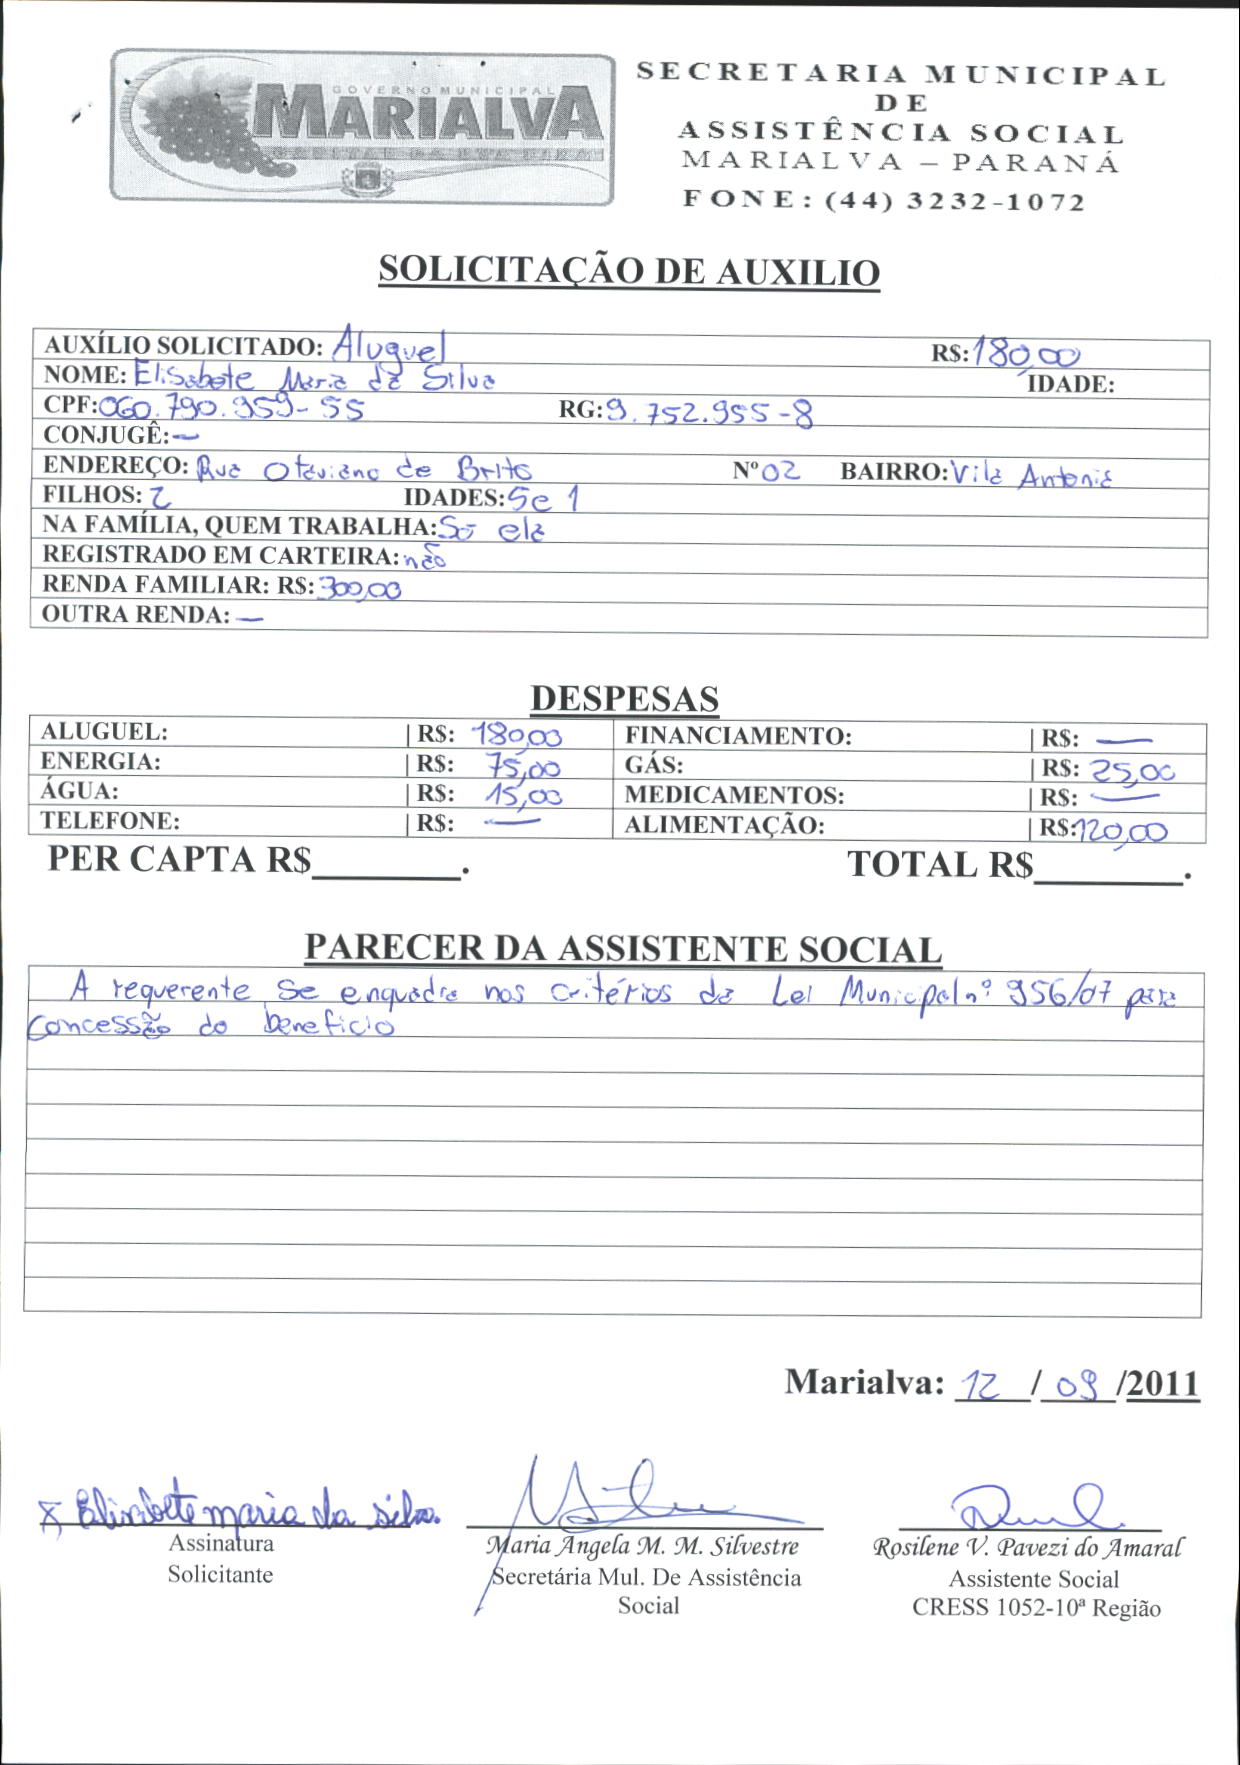 GOVERNO MUNICIPAL
MARIALVA
CAPITAL DA UVA FINA
SECRETARIA MUNICIPAL
DE
ASSISTÊNCIA SOCIAL
MARIALVA – PARANÁ
FONE: (44) 3232-1072
SOLICITAÇÃO DE AUXILIO
AUXÍLIO SOLICITADO: Aluguel R$: 180,00
NOME: Elisabete Maria da Silva IDADE:
CPF: 060.790.959-55 RG: 9.752.955-8
CONJUGÊ: —
ENDEREÇO: Rua Otaviano de Brito Nº 02 BAIRRO: Vila Antonia
FILHOS: 2 IDADES: 5 e 1
NA FAMÍLIA, QUEM TRABALHA: Só ela
REGISTRADO EM CARTEIRA: não
RENDA FAMILIAR: R$: 300,00
OUTRA RENDA: —
DESPESAS
ALUGUEL: | R$: 180,00 FINANCIAMENTO: | R$: —
ENERGIA: | R$: 75,00 GÁS: | R$: 25,00
ÁGUA: | R$: 15,00 MEDICAMENTOS: | R$: —
TELEFONE: | R$: — ALIMENTAÇÃO: | R$: 120,00
PER CAPTA R$________. TOTAL R$________.
PARECER DA ASSISTENTE SOCIAL
A requerente se enquadra nos critérios da Lei Municipal nº 956/07 para
concessão do beneficio
Marialva: 12 / 09 /2011
x Elisabete maria da silva.
Assinatura
Solicitante
Maria Angela M. M. Silvestre
Secretária Mul. De Assistência
Social
Rosilene V. Pavezi do Amaral
Assistente Social
CRESS 1052-10ª Região